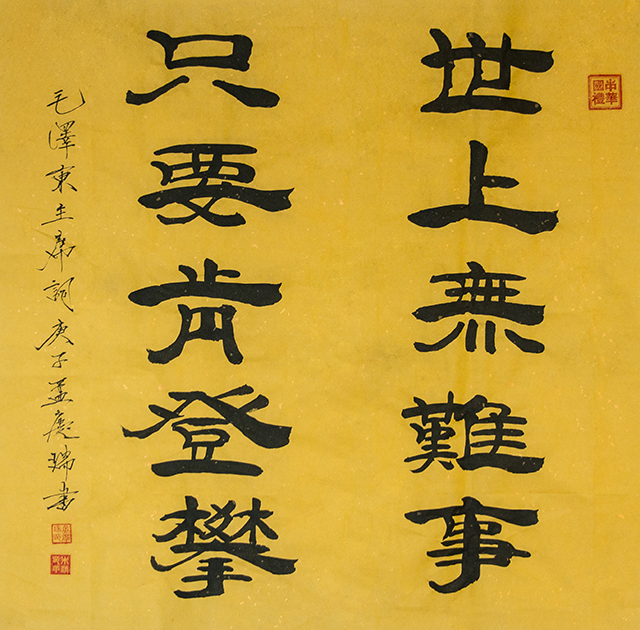 中華國禮
世上無難事
只要肯登攀
毛澤東主席詞庚子孟慶瑞書